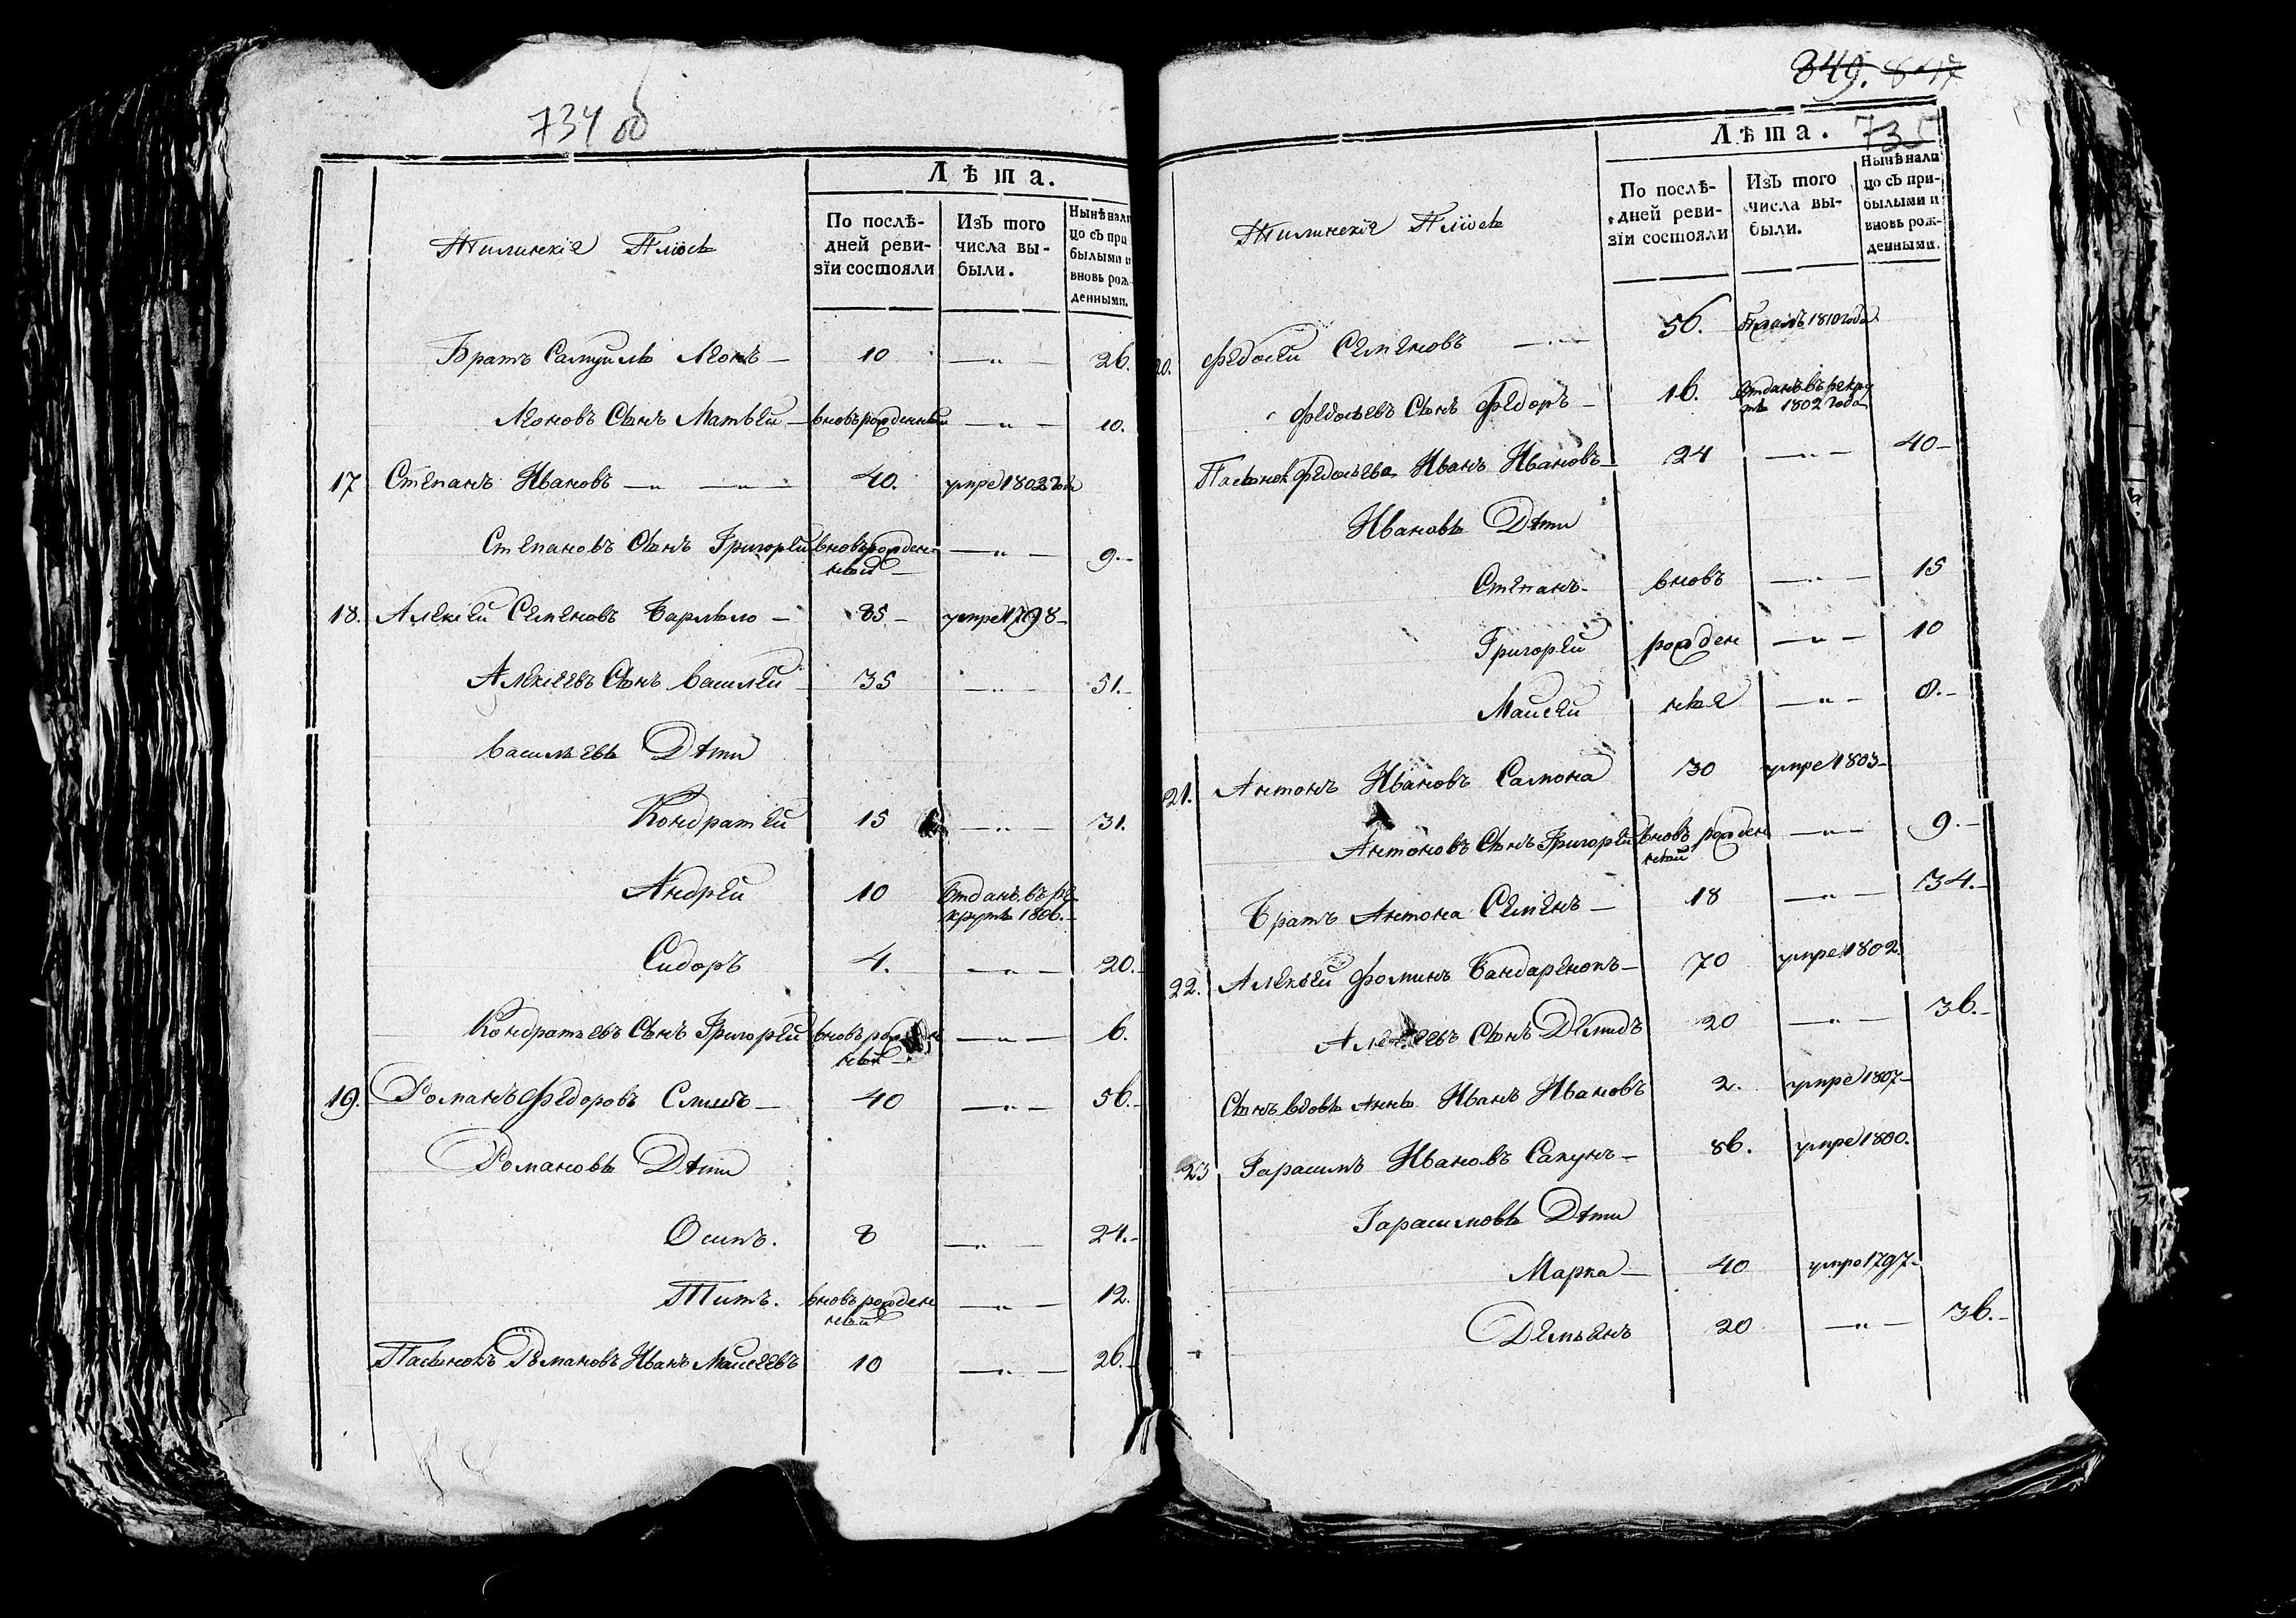 734 об
Лѣта.
По послѣ-
дней реви-
зіи состояли
Изъ того
числа вы-
были.
Нынѣ нали
цо съ при
былыми и
вновь рож-
денными.
Братъ Самуила Леонъ — 10 — " — 26.
Леоновъ Сынъ Матвей — вновьрожденный — " — 10.
17 Степанъ Ивановъ — " — " — 40. умре 1802 года
Степановъ Сынъ Григорей вновьрожден — " — 9.-
ный —
18. Алексей Семеновъ — 85 — умре 1798 -
Алексеевъ Сынъ Василей 35 — " — 51.-
Васильевы Дѣти
Кондратей 15 — " — 31.
Андрей 10 Отданъ въ ре-
круты 1806.-
Сидоръ 4. — " — 20.-
Кондратьевъ Сынъ Григорей — " — 6.
ный -
19. Романъ Федоровъ — 40 — " — 56.-
Романовы Дѣти
Осипъ. 8 — " — 24.-
Титъ. вновьрожден — " — 12.
ный
Пасынокъ Романовъ Иванъ Моисеевъ 10 — " — 26.-
349. 847
735
Лѣта.
По послѣ-
дней реви-
зіи состояли
Изъ того
числа вы-
были.
Нынѣ нали
цо съ при-
былыми и
вновь рож-
денными.
20. Федосей Семеновъ — " — 56. 1810 года
Федосѣевъ Сынъ Федоръ — 16. Отданъ въ рекру
ты 1802 года
Пасынокъ Федосѣева Иванъ Ивановъ — 24 — " — 40-
Ивановы Дѣти
Степанъ- вновь — " — 15
Григорей рожден — " — 10
Моисей ные — " — 8.-
21. Антонъ Ивановъ Сапона 30 умре 1803-
Антоновъ Сынъ Григорей вновь рожден — " — 9.-
ный
Братъ Антона Семенъ — 18 — " — 34.-
22. Алексѣй Фоминъ Бандаренокъ — 70 умре 1802
Алексеевъ Сынъ Демидъ 20 — " — 36.-
Сынъ вдовы Анны Иванъ Ивановъ 2. умре 1807-
23 Гарасимъ Ивановъ Сапунъ — 86. умре 1800.
Гарасимовы Дѣти
Марка — 40 умре 1797-
Демьянъ 20 — " — 36.-